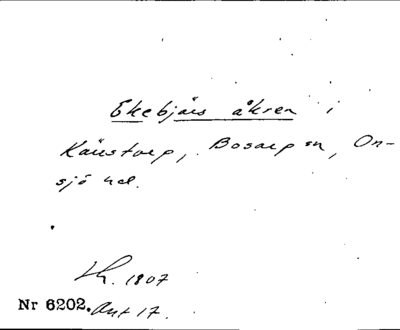 Ekebjärs åkren i
Kärstorp, Bosarp sn, On-
sjö hd.
Lh. 1807
Nr 6202. Ant 17.